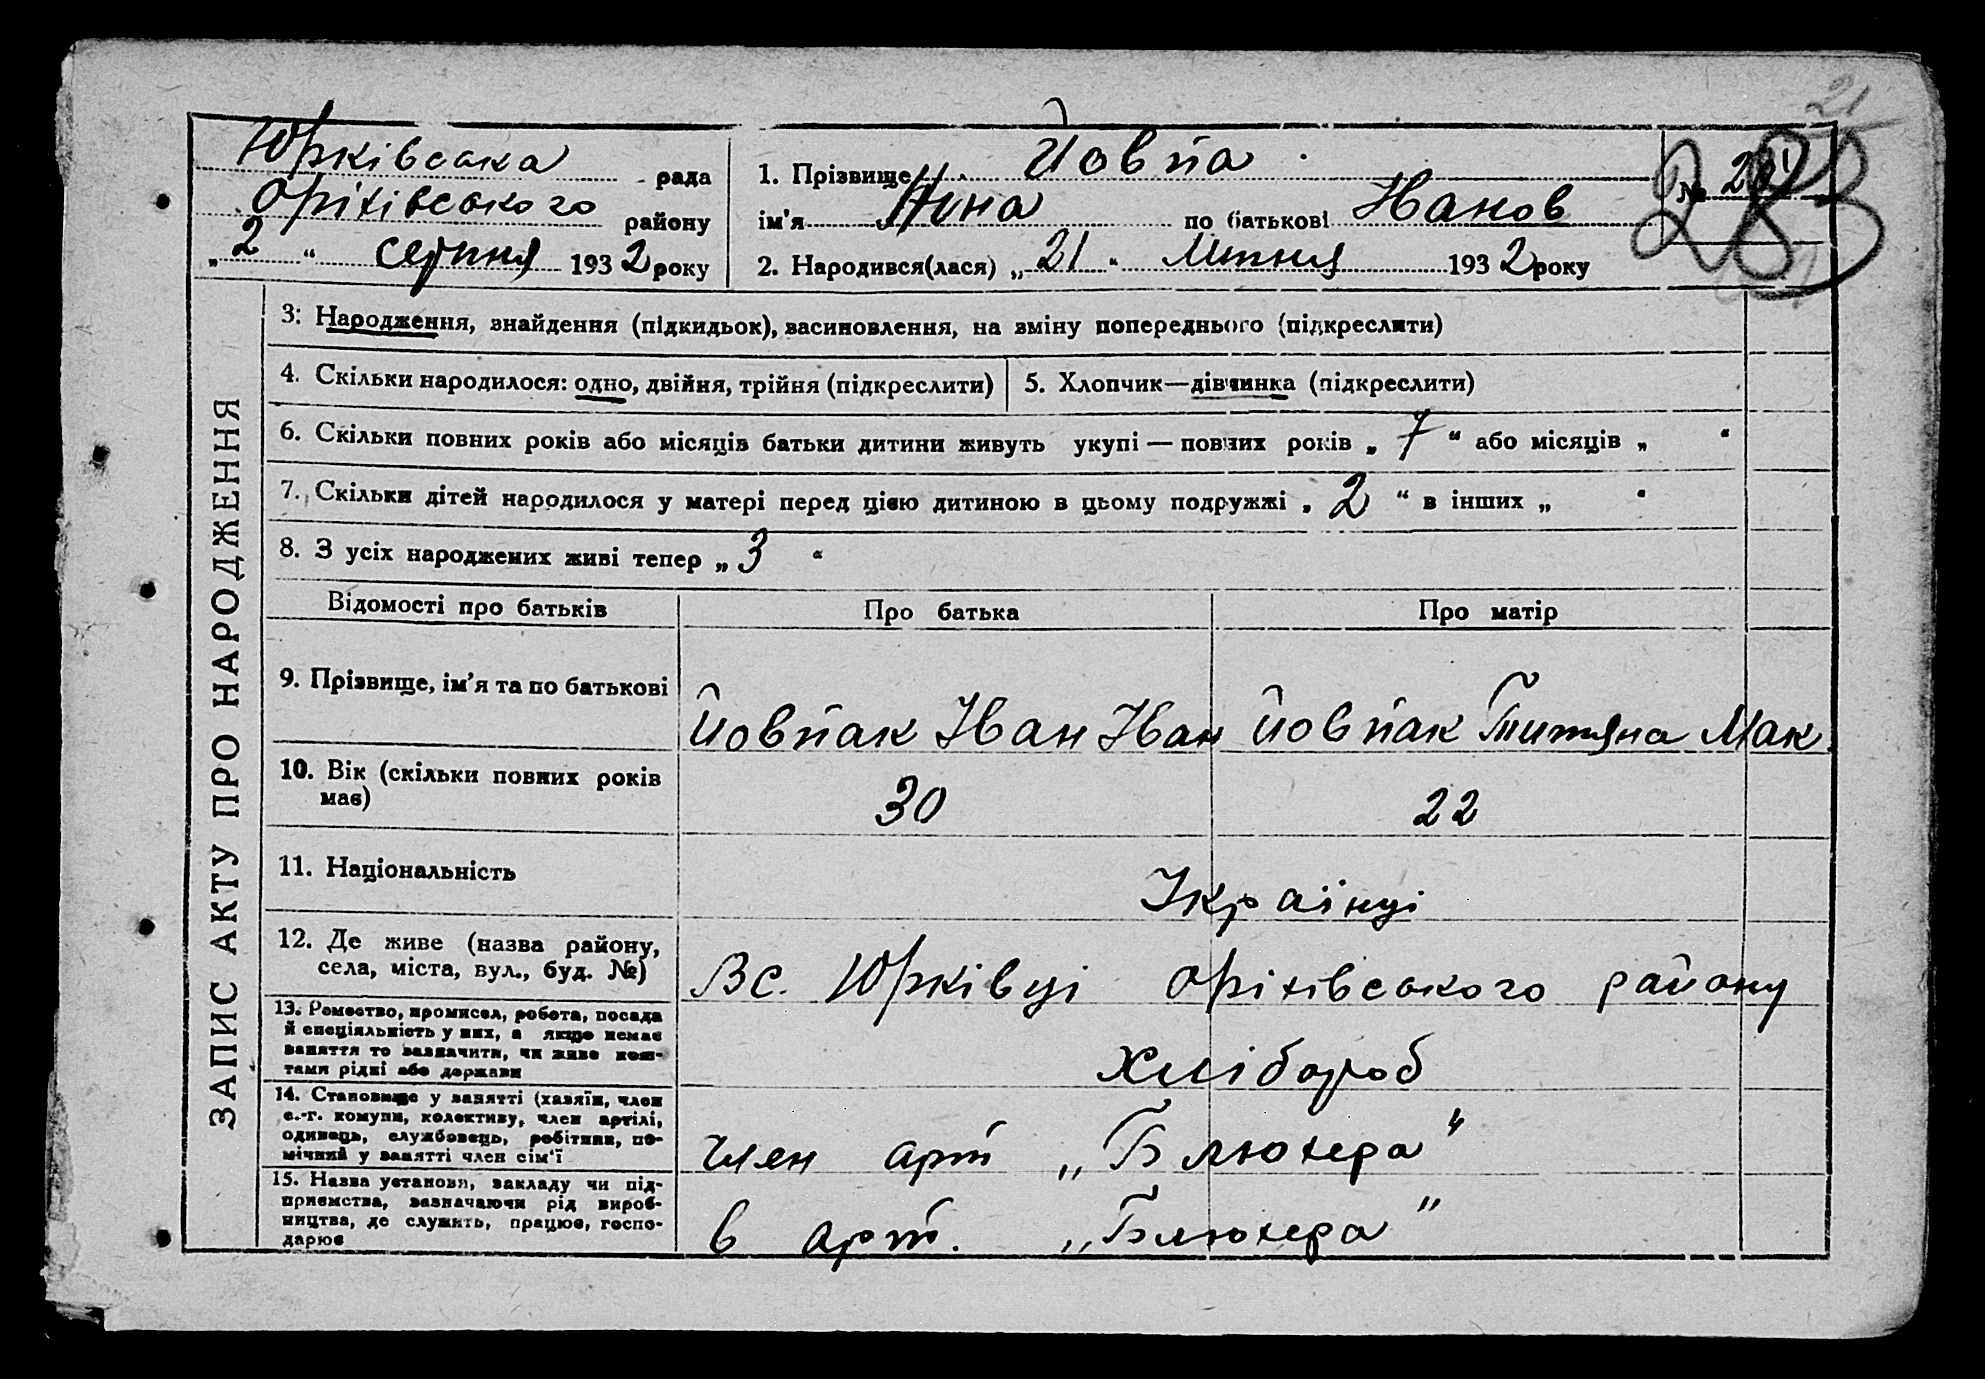 21
Юрківська рада
Оріхівського району
„2“ серпня 1932 року
1. Прізвище Йовпа
ім'я Ніна по батькові Иванов
2. Народився(лася) „21“ липня 1932 року
№ 281
283
ЗАПИС АКТУ ПРО НАРОДЖЕННЯ
3. Народження, знайдення (підкидьок), васиновлення, на зміну попереднього (підкреслити)
4. Скільки народилося: одно, двійня, трійня (підкреслити)
5. Хлопчик—дівчинка (підкреслити)
6. Скільки повних років або місяців батьки дитини живуть укупі — повних років „7“ або місяців „ “
7. Скільки дітей народилося у матері перед цією дитиною в цьому подружжі „2“ в інших „ “
8. З усіх народжених живі тепер „3“
Відомості про батьків Про батька Про матір
9. Прізвище, ім'я та по батькові
Йовпак Іван Іван Йовпак Титяна Мак.
10. Вік (скільки повних років
має)
30 22
11. Національність
Українці
12. Де живе (назва району,
села, міста, вул., буд. №)
В с. Юрківці Оріхівського району
13. Ремество, промисел, робота, посада
й спеціяльність у них, а якщо немає
заняття то зазначити, чи живе кош-
тами рідні або держави
Хлібороб
14. Становище у занятті (хазяїн, член
с.-г. комуни, колективу, член артілі,
одинець, службовець, робітник, по-
мічний у занятті член сім'ї
член арт „Блюхера“
15. Назва установи, закладу чи під-
приємства, зазначаючи рід вироб-
ництва, де служить, працює, госпо-
дарює
в арт. „Блюхера“